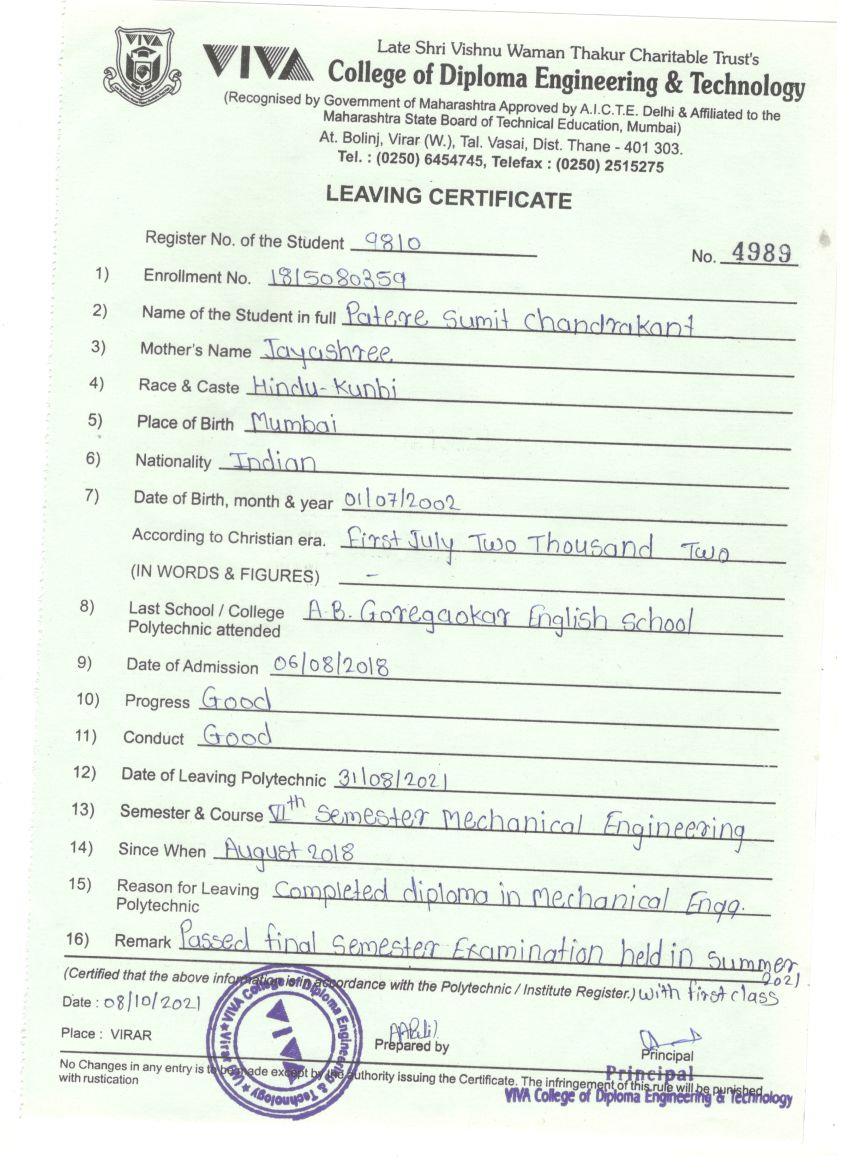 VIVA
Late Shri Vishnu Waman Thakur Charitable Trust's
VIVA College of Diploma Engineering & Technology
(Recognised by Government of Maharashtra Approved by A.I.C.T.E. Delhi & Affiliated to the
Maharashtra State Board of Technical Education, Mumbai)
At. Bolinj, Virar (W.), Tal. Vasai, Dist. Thane - 401 303.
Tel. : (0250) 6454745, Telefax : (0250) 2515275
LEAVING CERTIFICATE
Register No. of the Student 9810
No. 4989
1) Enrollment No. 1815080359
2) Name of the Student in full Patere Sumit Chandrakant
3) Mother's Name Jayashree
4) Race & Caste Hindu-Kunbi
5) Place of Birth Mumbai
6) Nationality Indian
7) Date of Birth, month & year 01/07/2002
According to Christian era. First July Two Thousand Two
(IN WORDS & FIGURES) –
8) Last School / College A.B. Goregaokar English School
Polytechnic attended
9) Date of Admission 06/08/2018
10) Progress Good
11) Conduct Good
12) Date of Leaving Polytechnic 31/08/2021
13) Semester & Course VIth Semester Mechanical Engineering
14) Since When August 2018
15) Reason for Leaving Completed diploma in Mechanical Engg.
Polytechnic
16) Remark Passed final Semester Examination held in Summer
2021
(Certified that the above information is in accordance with the Polytechnic / Institute Register.) with first class
Date : 08/10/2021
VIVA College of Diploma Engineering & Technology (Virar)
VIVA
Place : VIRAR
Prepared by
Principal
Principal
No Changes in any entry is to be made except by the authority issuing the Certificate. The infringement of this rule will be punished
with rustication
VIVA College of Diploma Engineering & Technology